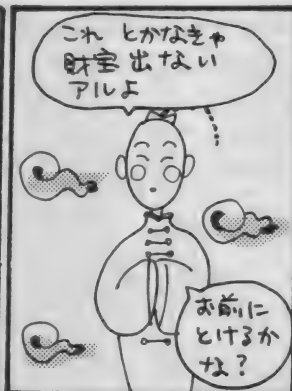 これ とかなきゃ
財宝 出ない
アルよ
お前に
とけるか
な?